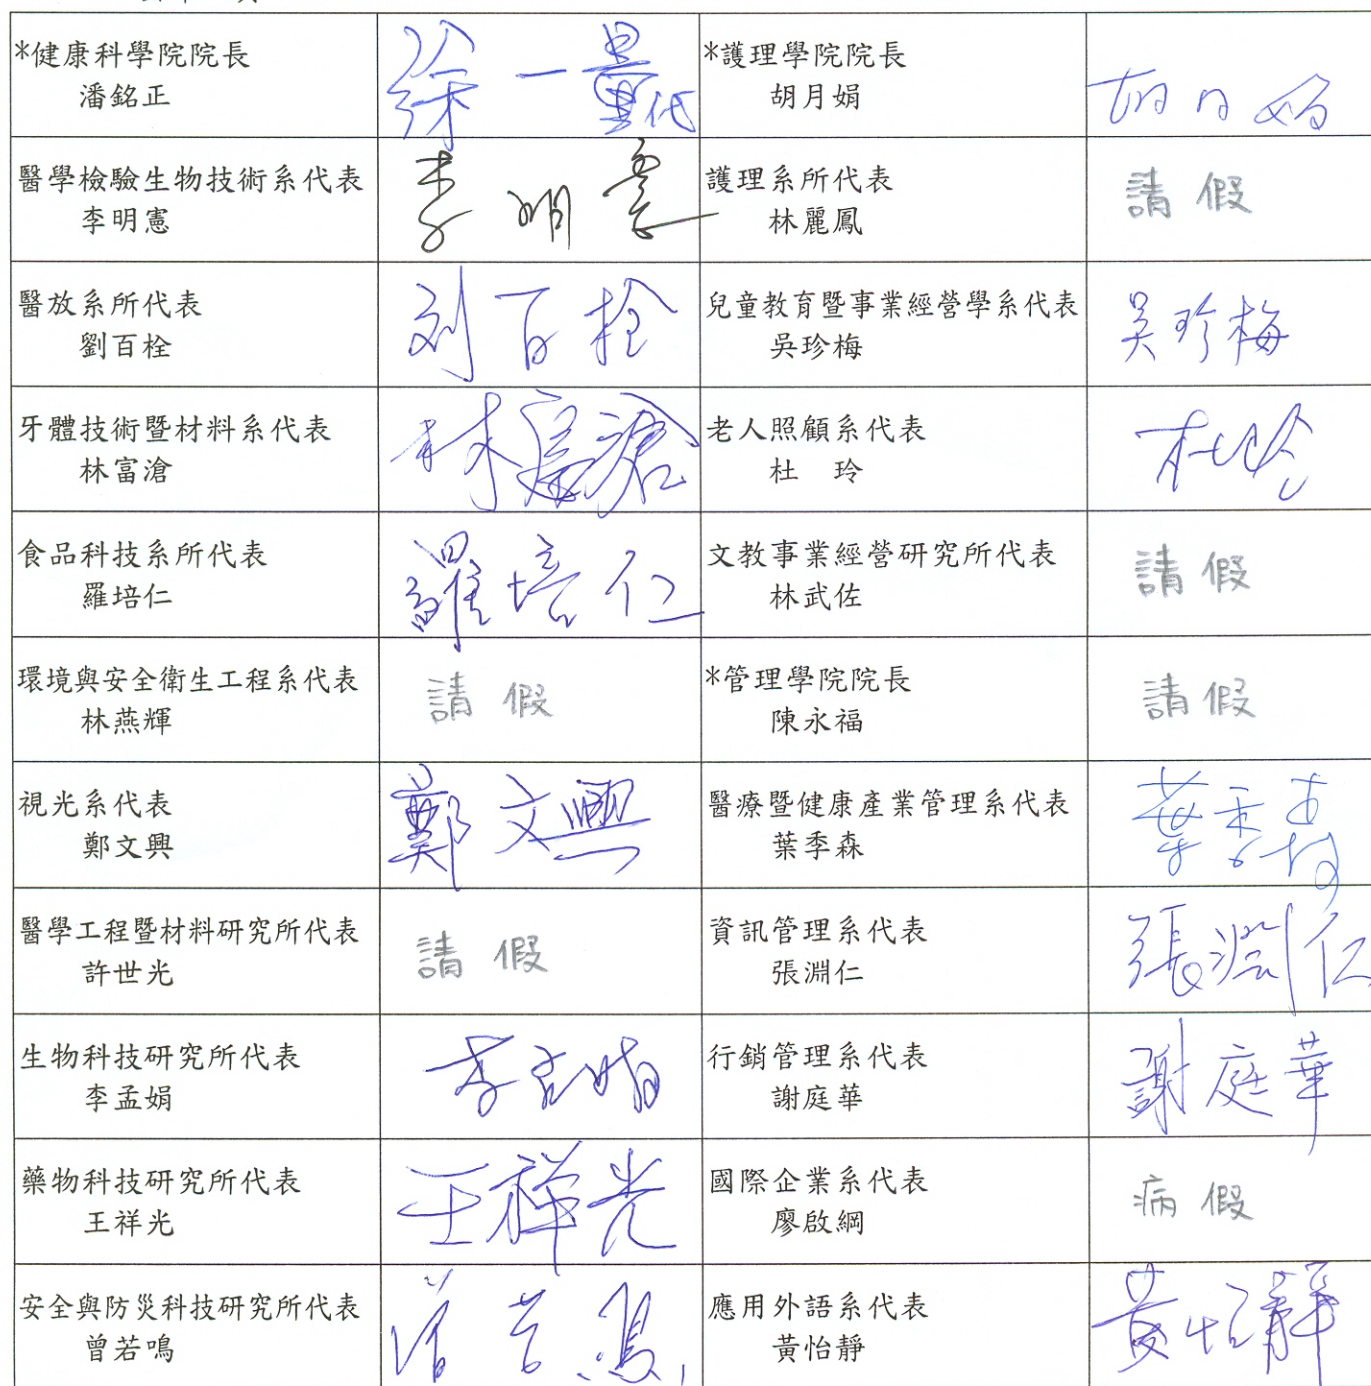 *健康科學院院長
潘銘正
徐一量代
*護理學院院長
胡月娟
胡月娟
醫學檢驗生物技術系代表
李明憲
李明憲
護理系所代表
林麗鳳
請假
醫放系所代表
劉百栓
刘百栓
兒童教育暨事業經營學系代表
吳珍梅
吳珍梅
牙體技術暨材料系代表
林富滄
林富滄
老人照顧系代表
杜 玲
杜玲
食品科技系所代表
羅培仁
羅培仁
文教事業經營研究所代表
林武佐
請假
環境與安全衛生工程系代表
林燕輝
請假
*管理學院院長
陳永福
請假
視光系代表
鄭文興
鄭文興
醫療暨健康產業管理系代表
葉季森
葉季森
醫學工程暨材料研究所代表
許世光
請假
資訊管理系代表
張淵仁
張淵仁
生物科技研究所代表
李孟娟
李孟娟
行銷管理系代表
謝庭華
謝庭華
藥物科技研究所代表
王祥光
王祥光
國際企業系代表
廖啟綱
病假
安全與防災科技研究所代表
曾若鳴
曾若鳴
應用外語系代表
黃怡靜
黃怡靜